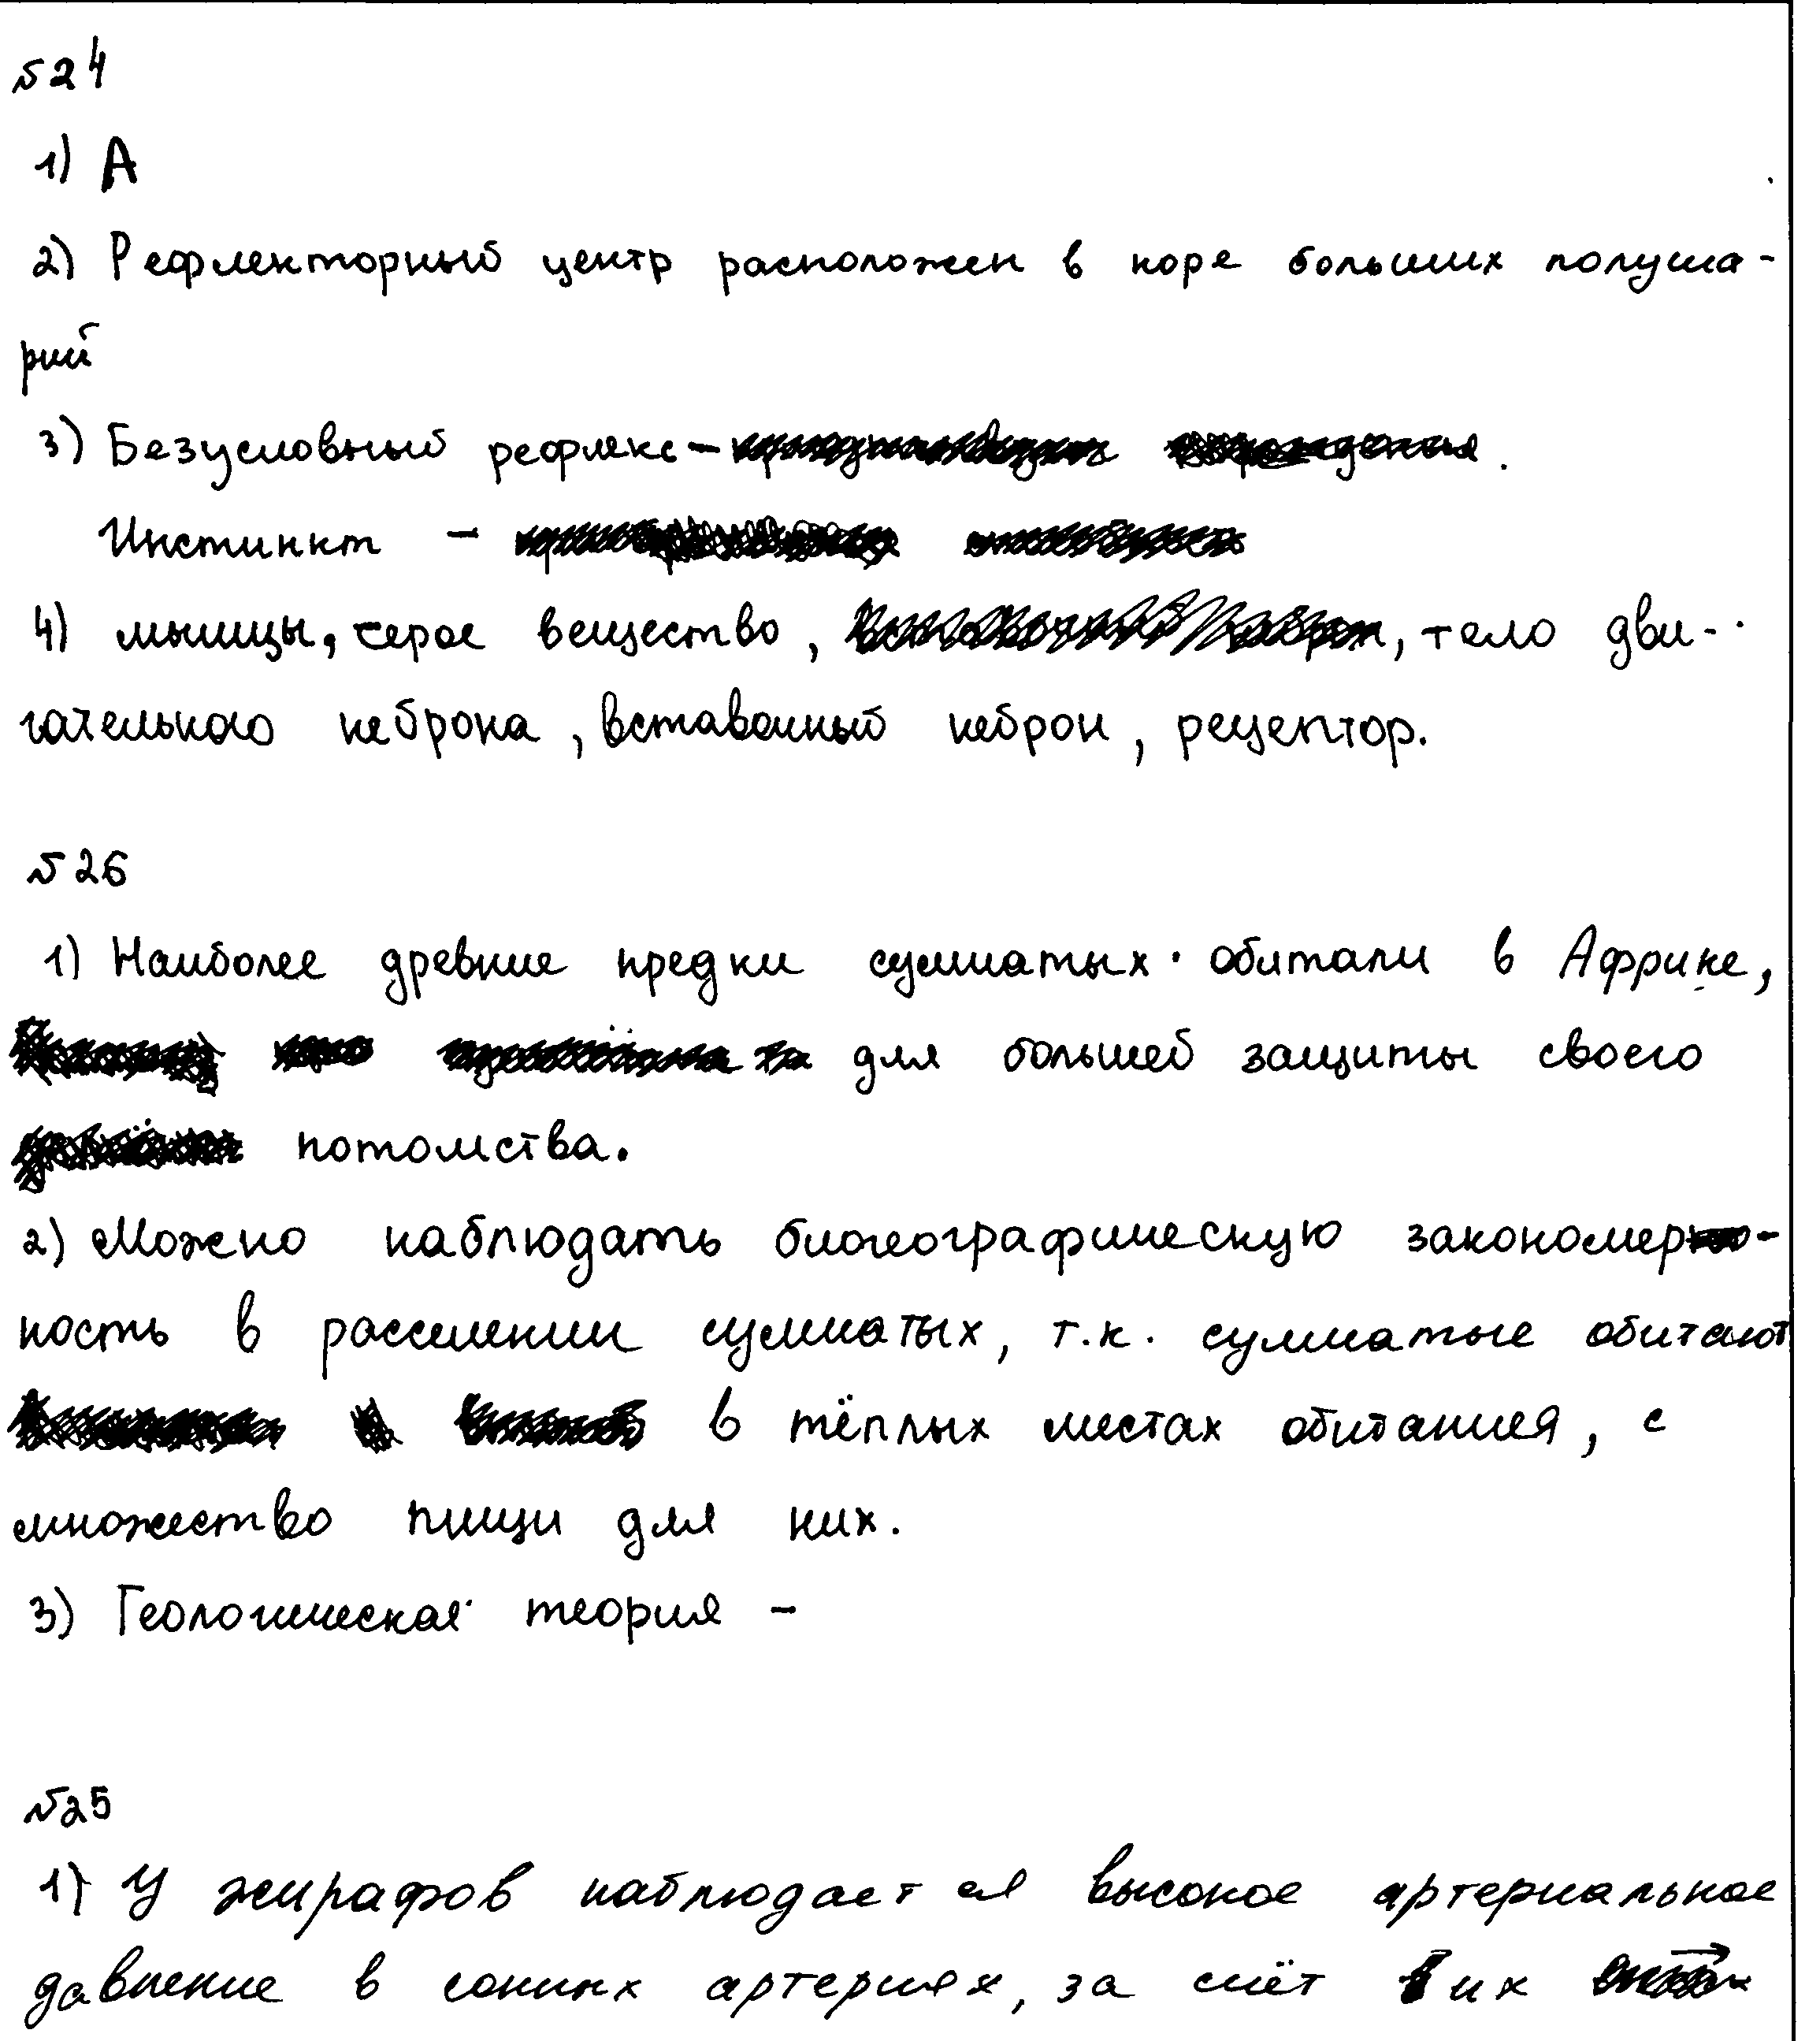 №24
1) А
2) Рефлекторный центр расположен в коре больших полуша-
рий
3) Безусловный рефлекс –
Инстинкт –
4) мышцы, серое вещество, , тело дви-
гательного нейрона, вставочный нейрон, рецептор.
№26
1) Наиболее древние предки сумчатых обитали в Африке,
для большей защиты своего
потомства.
2) Можно наблюдать биогеографическую закономер-
ность в расселении сумчатых, т.к. сумчатые обитают
в тёплых местах обитания, с
множество пищи для них.
3) Геологическая теория –
№25
1) У жирафов наблюдается высокое артериальное
давление в сонных артериях, за счёт их